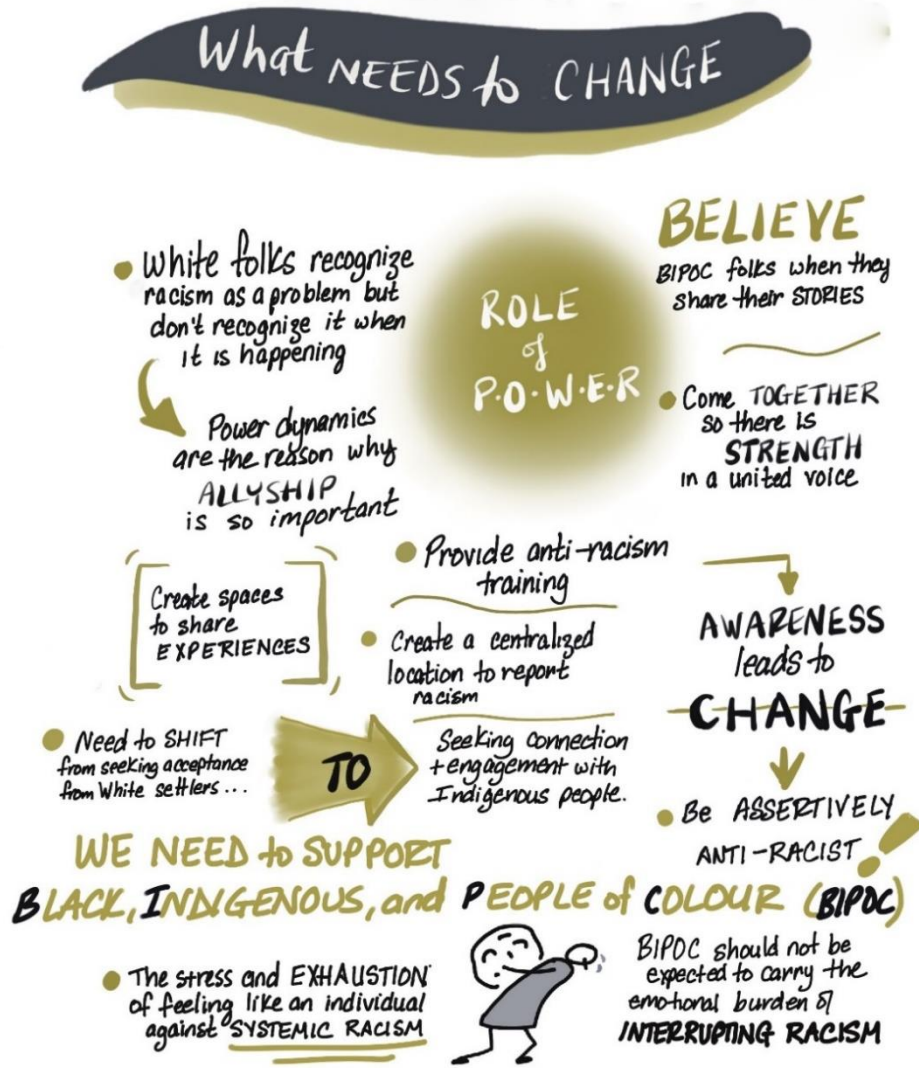 What NEEDS to CHANGE
White folks recognize
racism as a problem but
don't recognize it when
it is happening
Power dynamics
are the reason why
ALLYSHIP
is so important
ROLE
of
P.O.W.E.R
BELIEVE
BIPOC folks when they
share their STORIES
Come TOGETHER
so there is
STRENGTH
in a united voice
Create spaces
to share
EXPERIENCES
Provide anti-racism
training
Create a centralized
location to report
racism
AWARENESS
leads to
CHANGE
Be ASSERTIVELY
ANTI-RACIST!
Need to SHIFT
from seeking acceptance
from White settlers...
TO
Seeking connection
+ engagement with
Indigenous people.
WE NEED to SUPPORT
BLACK, INDIGENOUS, and PEOPLE of COLOUR (BIPOC)
The stress and EXHAUSTION
of feeling like an individual
against SYSTEMIC RACISM
BIPOC should not be
expected to carry the
emotional burden of
INTERRUPTING RACISM